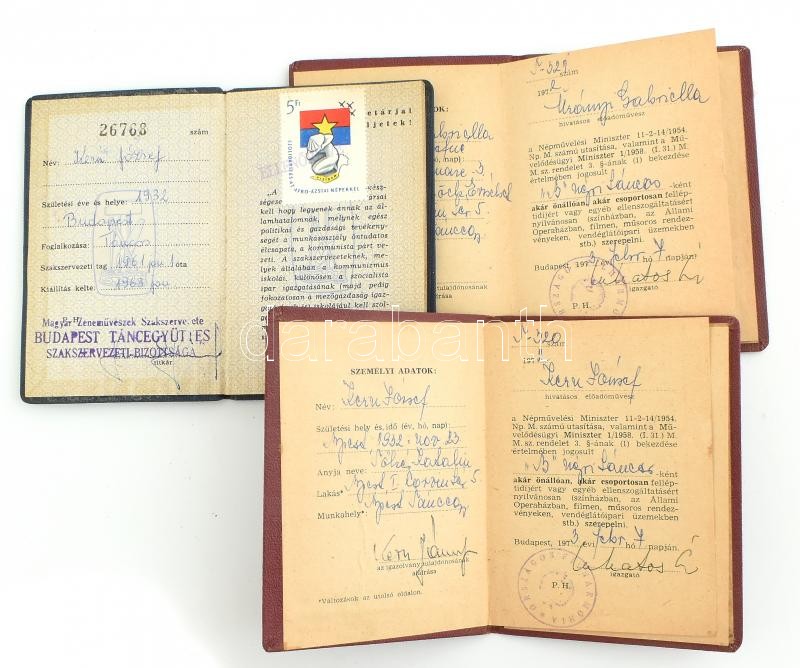 26768 szám
Név: Kern József
Születési éve és helye: 1932
Budapest
Foglalkozása: Táncos
Szakszervezeti tag 1961 óta
Kiállítás kelte: 1963
P. H.
Magyar Zeneművészek Szakszervezete
BUDAPEST TÁNCEGYÜTTES
SZAKSZERVEZETI BIZOTTSÁGA
titkár
5 Ft
SZOLIDARITÁS
AFRO-ÁZSIAI NÉPEKKEL
etárjai
ljetek!
kell hogy legyenek annak az ál-
lamhatalomnak, melynek egész
politikai és gazdasági tevékeny-
ségét a munkásosztály öntudatos
élcsapata, a kommunista párt ve-
zeti. A szakszervezeteknek, me-
lyek általában a kommunizmus
iskolái, különösen a szocialista
ipar igazgatásának (majd pedig
fokozatosan a mezőgazdaság igaz-
OK:
Gabriella
lajdonosának
aláírása
F-321 szám
197
Urányi Gabriella
hivatásos előadóművész
a Népművelési Miniszter 11-2-14/1954.
Np. M. számú utasítása, valamint a Mű-
velődésügyi Miniszter 1/1958. (I. 31.) M
M. sz. rendelet 3. §-ának (1) bekezdése
értelmében jogosult
"B" népi táncos -ként
akár önállóan, akár csoportosan fellép-
tidíjért vagy egyéb ellenszolgáltatásért
nyilvánosan (színházban, az Állami
Operaházban, filmen, műsoros rendez-
vényeken, vendéglátóipari üzemekben
stb.) szerepelni.
Budapest, 1973 évi febr hó 7 napján.
Lakatos É
igazgató
P. H.
darabanth
SZEMÉLYI ADATOK:
Név: Kern József
Születési hely és idő (év, hó, nap):
Bpest 1932 nov 23
Anyja neve: Katalin
Lakás* Bpest I 5.
Munkahely*: Bpest Táncegy
Kern József
az igazolvány tulajdonosának
aláírása
*Változások az utolsó oldalon.
F-320 szám
197
Kern József
hivatásos előadóművész
a Népművelési Miniszter 11-2-14/1954.
Np. M. számú utasítása, valamint a Mű-
velődésügyi Miniszter 1/1958. (I. 31.) M
M. sz. rendelet 3. §-ának (1) bekezdése
értelmében jogosult
"B" népi táncos -ként
akár önállóan, akár csoportosan fellép-
tidíjért vagy egyéb ellenszolgáltatásért
nyilvánosan (színházban, az Állami
Operaházban, filmen, műsoros rendez-
vényeken, vendéglátóipari üzemekben
stb.) szerepelni.
Budapest, 1973 évi febr hó 7 napján.
Lakatos É
igazgató
P. H.
ORSZÁGOS FILHARMÓNIA